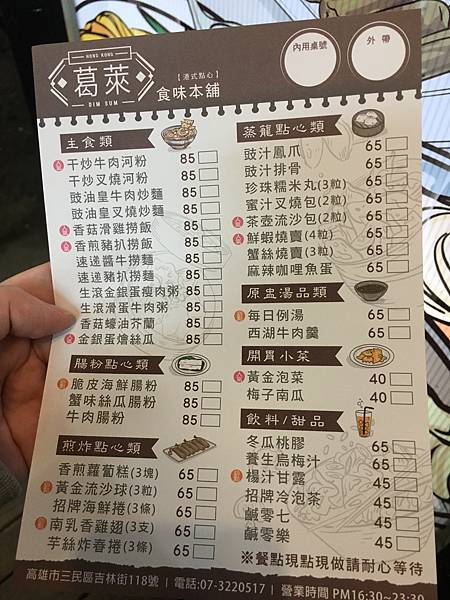 HONG KONG
葛萊
DIM SUM
【港式點心】
食味本舖
內用桌號
外帶
主食類
干炒牛肉河粉 85
干炒叉燒河粉 85
豉油皇牛肉炒麵 85
豉油皇叉燒炒麵 85
香菇滑雞撈飯 85
香煎豬扒撈飯 85
速遞醬牛撈麵 85
速遞豬扒撈麵 85
生滾金銀蛋瘦肉粥 85
生滾滑蛋牛肉粥 85
香菇蠔油芥蘭 85
金銀蛋燴絲瓜 85
腸粉點心類
脆皮海鮮腸粉 85
蟹味絲瓜腸粉 85
牛肉腸粉 85
煎炸點心類
香煎蘿蔔糕(3塊) 65
黃金流沙球(3粒) 65
招牌海鮮捲(3條) 65
南乳香雞翅(3支) 65
芋絲炸春捲(3條) 65
蒸籠點心類
豉汁鳳爪 65
豉汁排骨 65
珍珠糯米丸(3粒) 65
蜜汁叉燒包(2粒) 65
茶壺流沙包(2粒) 65
鮮蝦燒賣(4粒) 65
蟹絲燒賣(3粒) 65
麻辣咖哩魚蛋 65
原盅湯品類
每日例湯 65
西湖牛肉羹 65
開胃小菜
黃金泡菜 40
梅子南瓜 40
飲料/甜品
冬瓜桃膠 65
養生烏梅汁 65
楊汁甘露 45
招牌冷泡茶 45
鹹零七 45
鹹零樂 45
※餐點現點現做請耐心等待
高雄市三民區吉林街118號｜電話:07-3220517｜營業時間 PM16:30~23:30